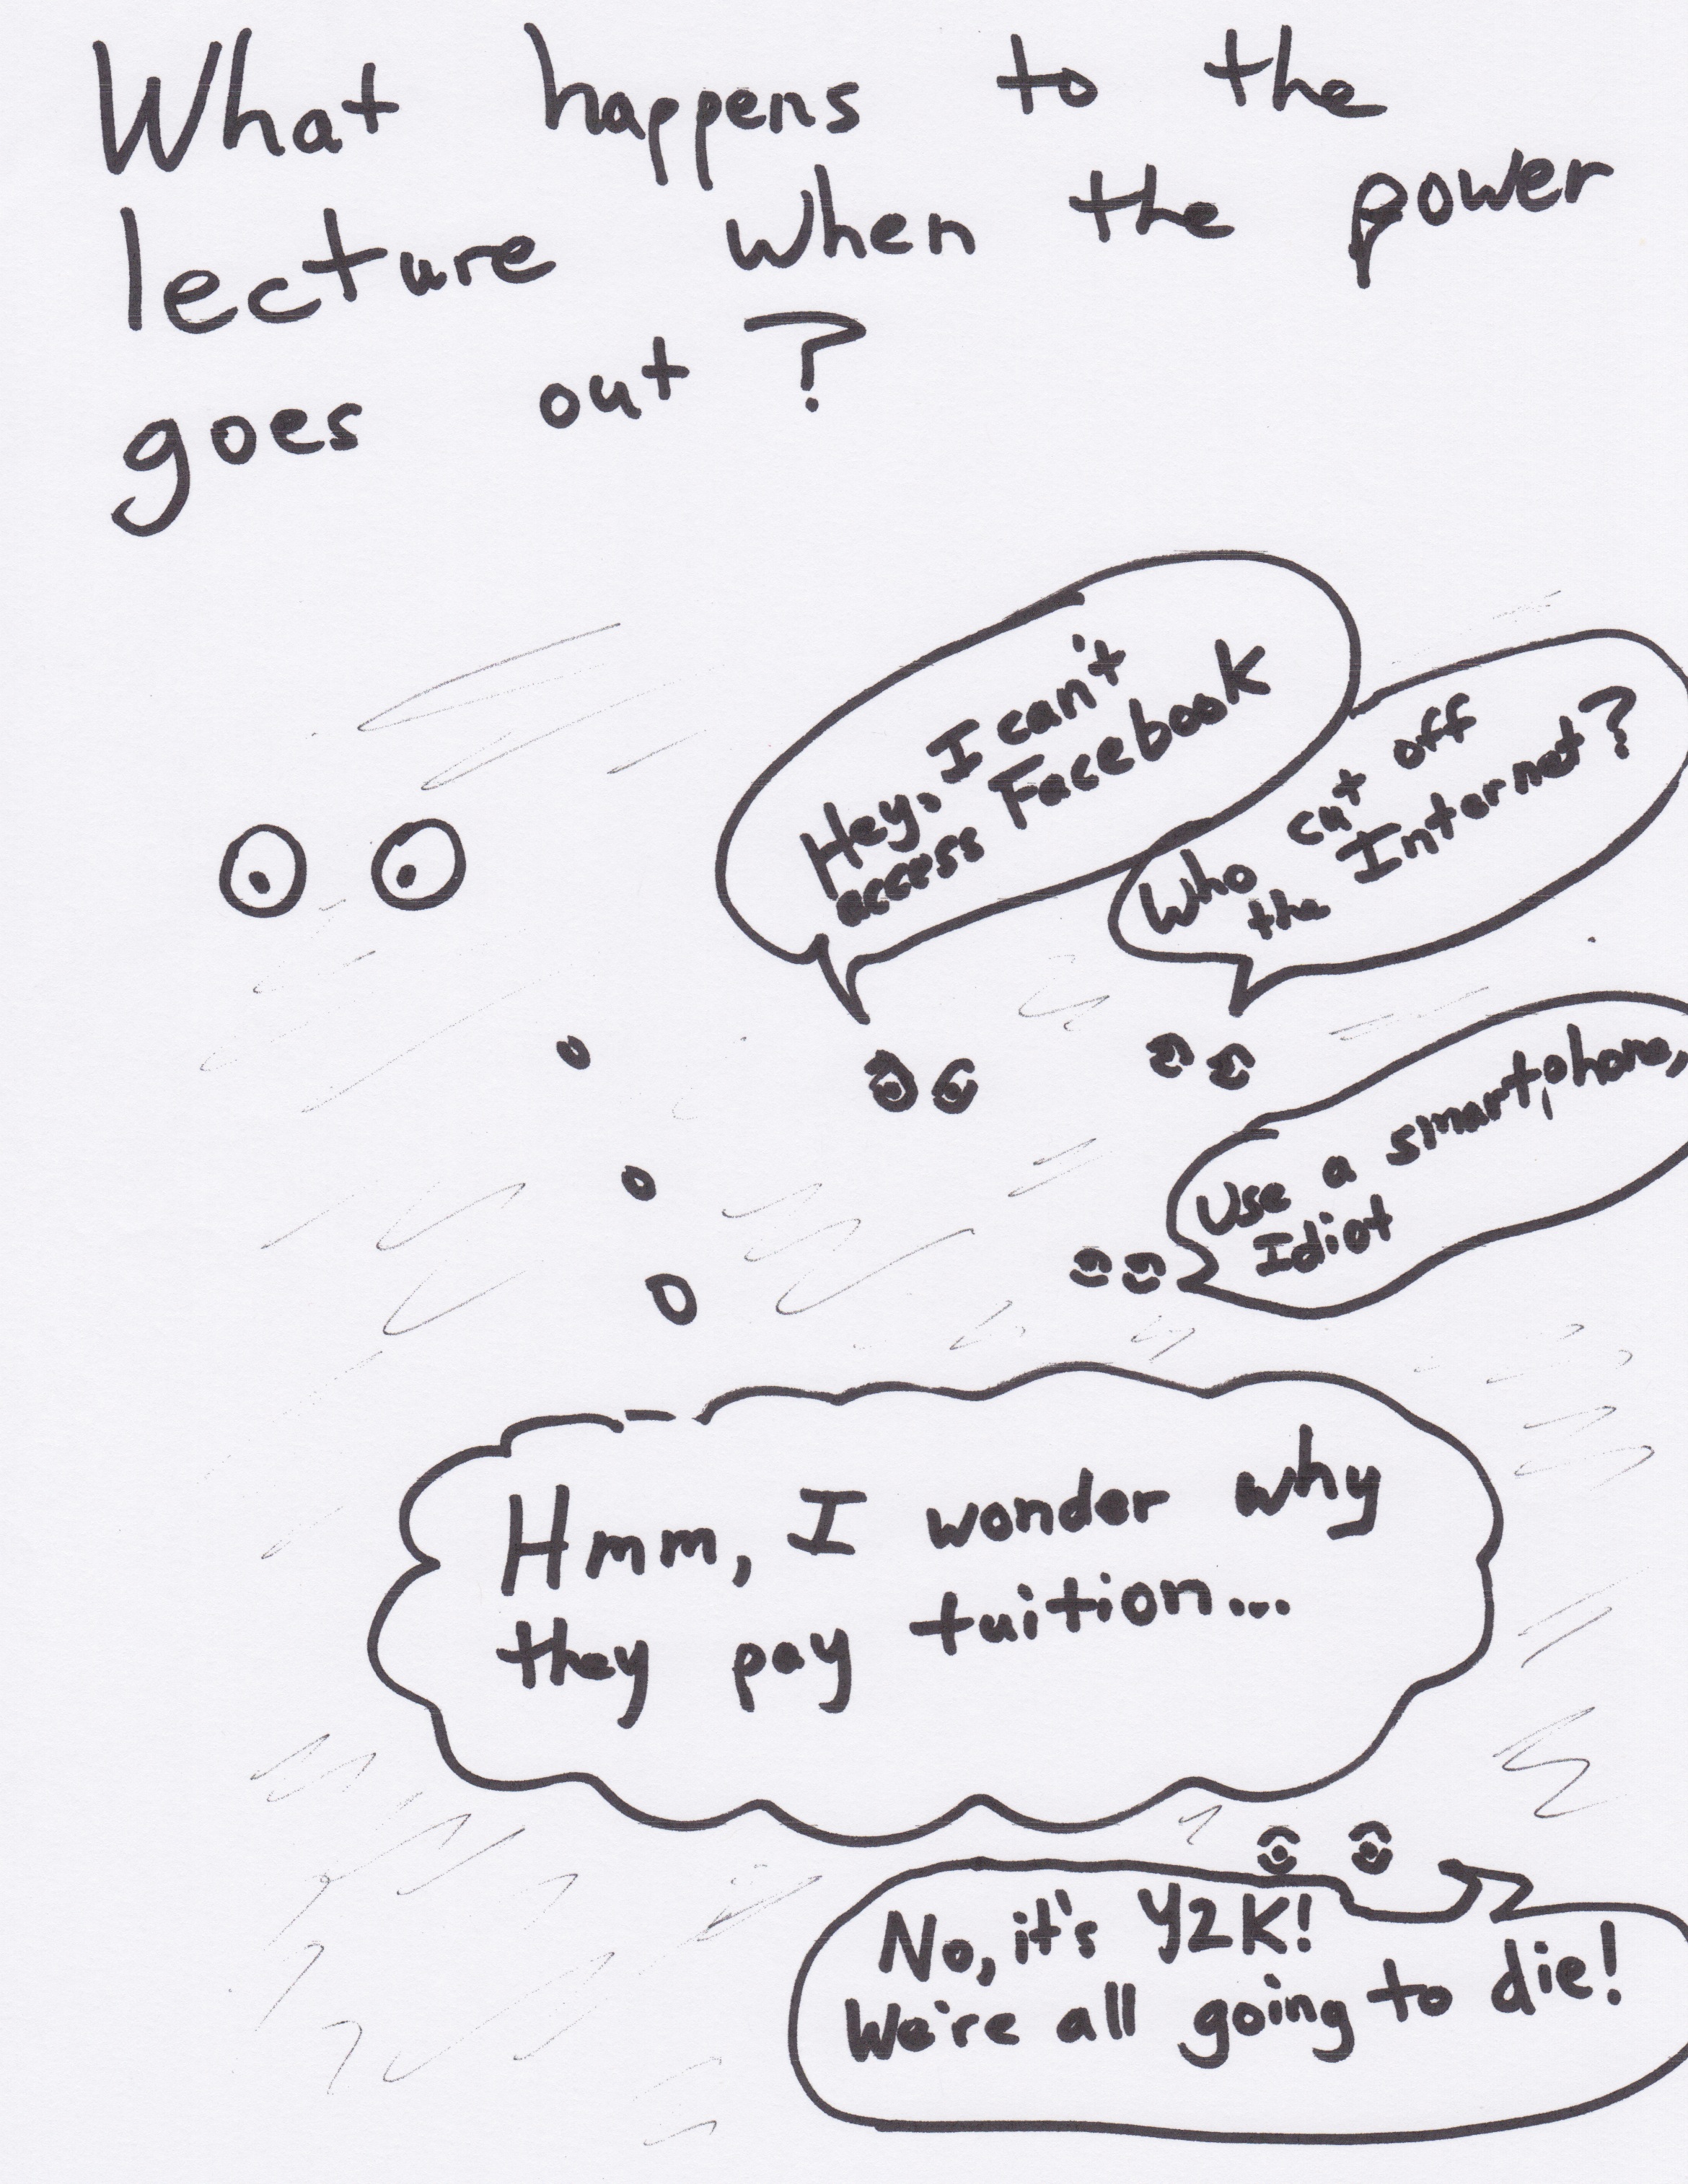 What happens to the
lecture when the power
goes out?
Hey, I can't
access Facebook
Who cut off
the Internet?
Use a smartphone,
Idiot
Hmm, I wonder why
they pay tuition...
No, it's Y2K!
We're all going to die!